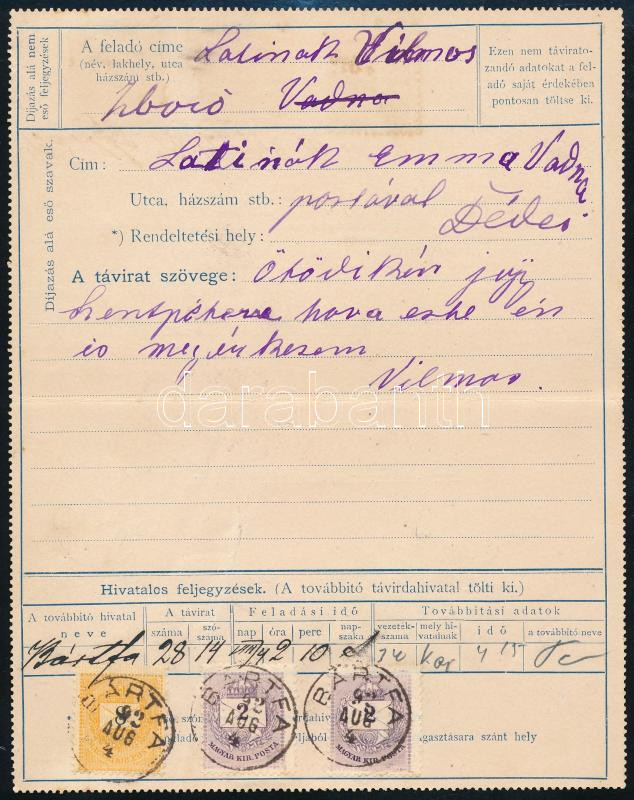 Díjazás alá nem eső feljegyzések
A feladó címe
(név, lakhely, utca
házszám stb.)
Latinák Vilmos
Zboró Vadna
Ezen nem távirato-
zandó adatokat a fel-
adó saját érdekében
pontosan töltse ki.
Díjazás alá eső szavak.
Cím: Latinák Emma Vadna
Utca, házszám stb.: postával
*) Rendeltetési hely: Dédes
A távirat szövege: Ötödikén jőjj
Szentpéterre hova este én
is megérkezem
Vilmos.
darabanth
Hivatalos feljegyzések. (A továbbító távírdahivatal tölti ki.)
A továbbító hivatal neve
A távirat
száma szó-száma
Feladási idő
nap óra perc nap-szaka
Továbbítási adatok
vezeték-száma mely hi-vatalnak idő a továbbító neve
Bártfa 28 14 VIII/4 2 10
BÁRTFA
92
AUG
4
BÁRTFA
92
AUG
4
MAGYAR KIR. POSTA
BÁRTFA
92
AUG
4
MAGYAR KIR. POSTA
ragasztására szánt hely